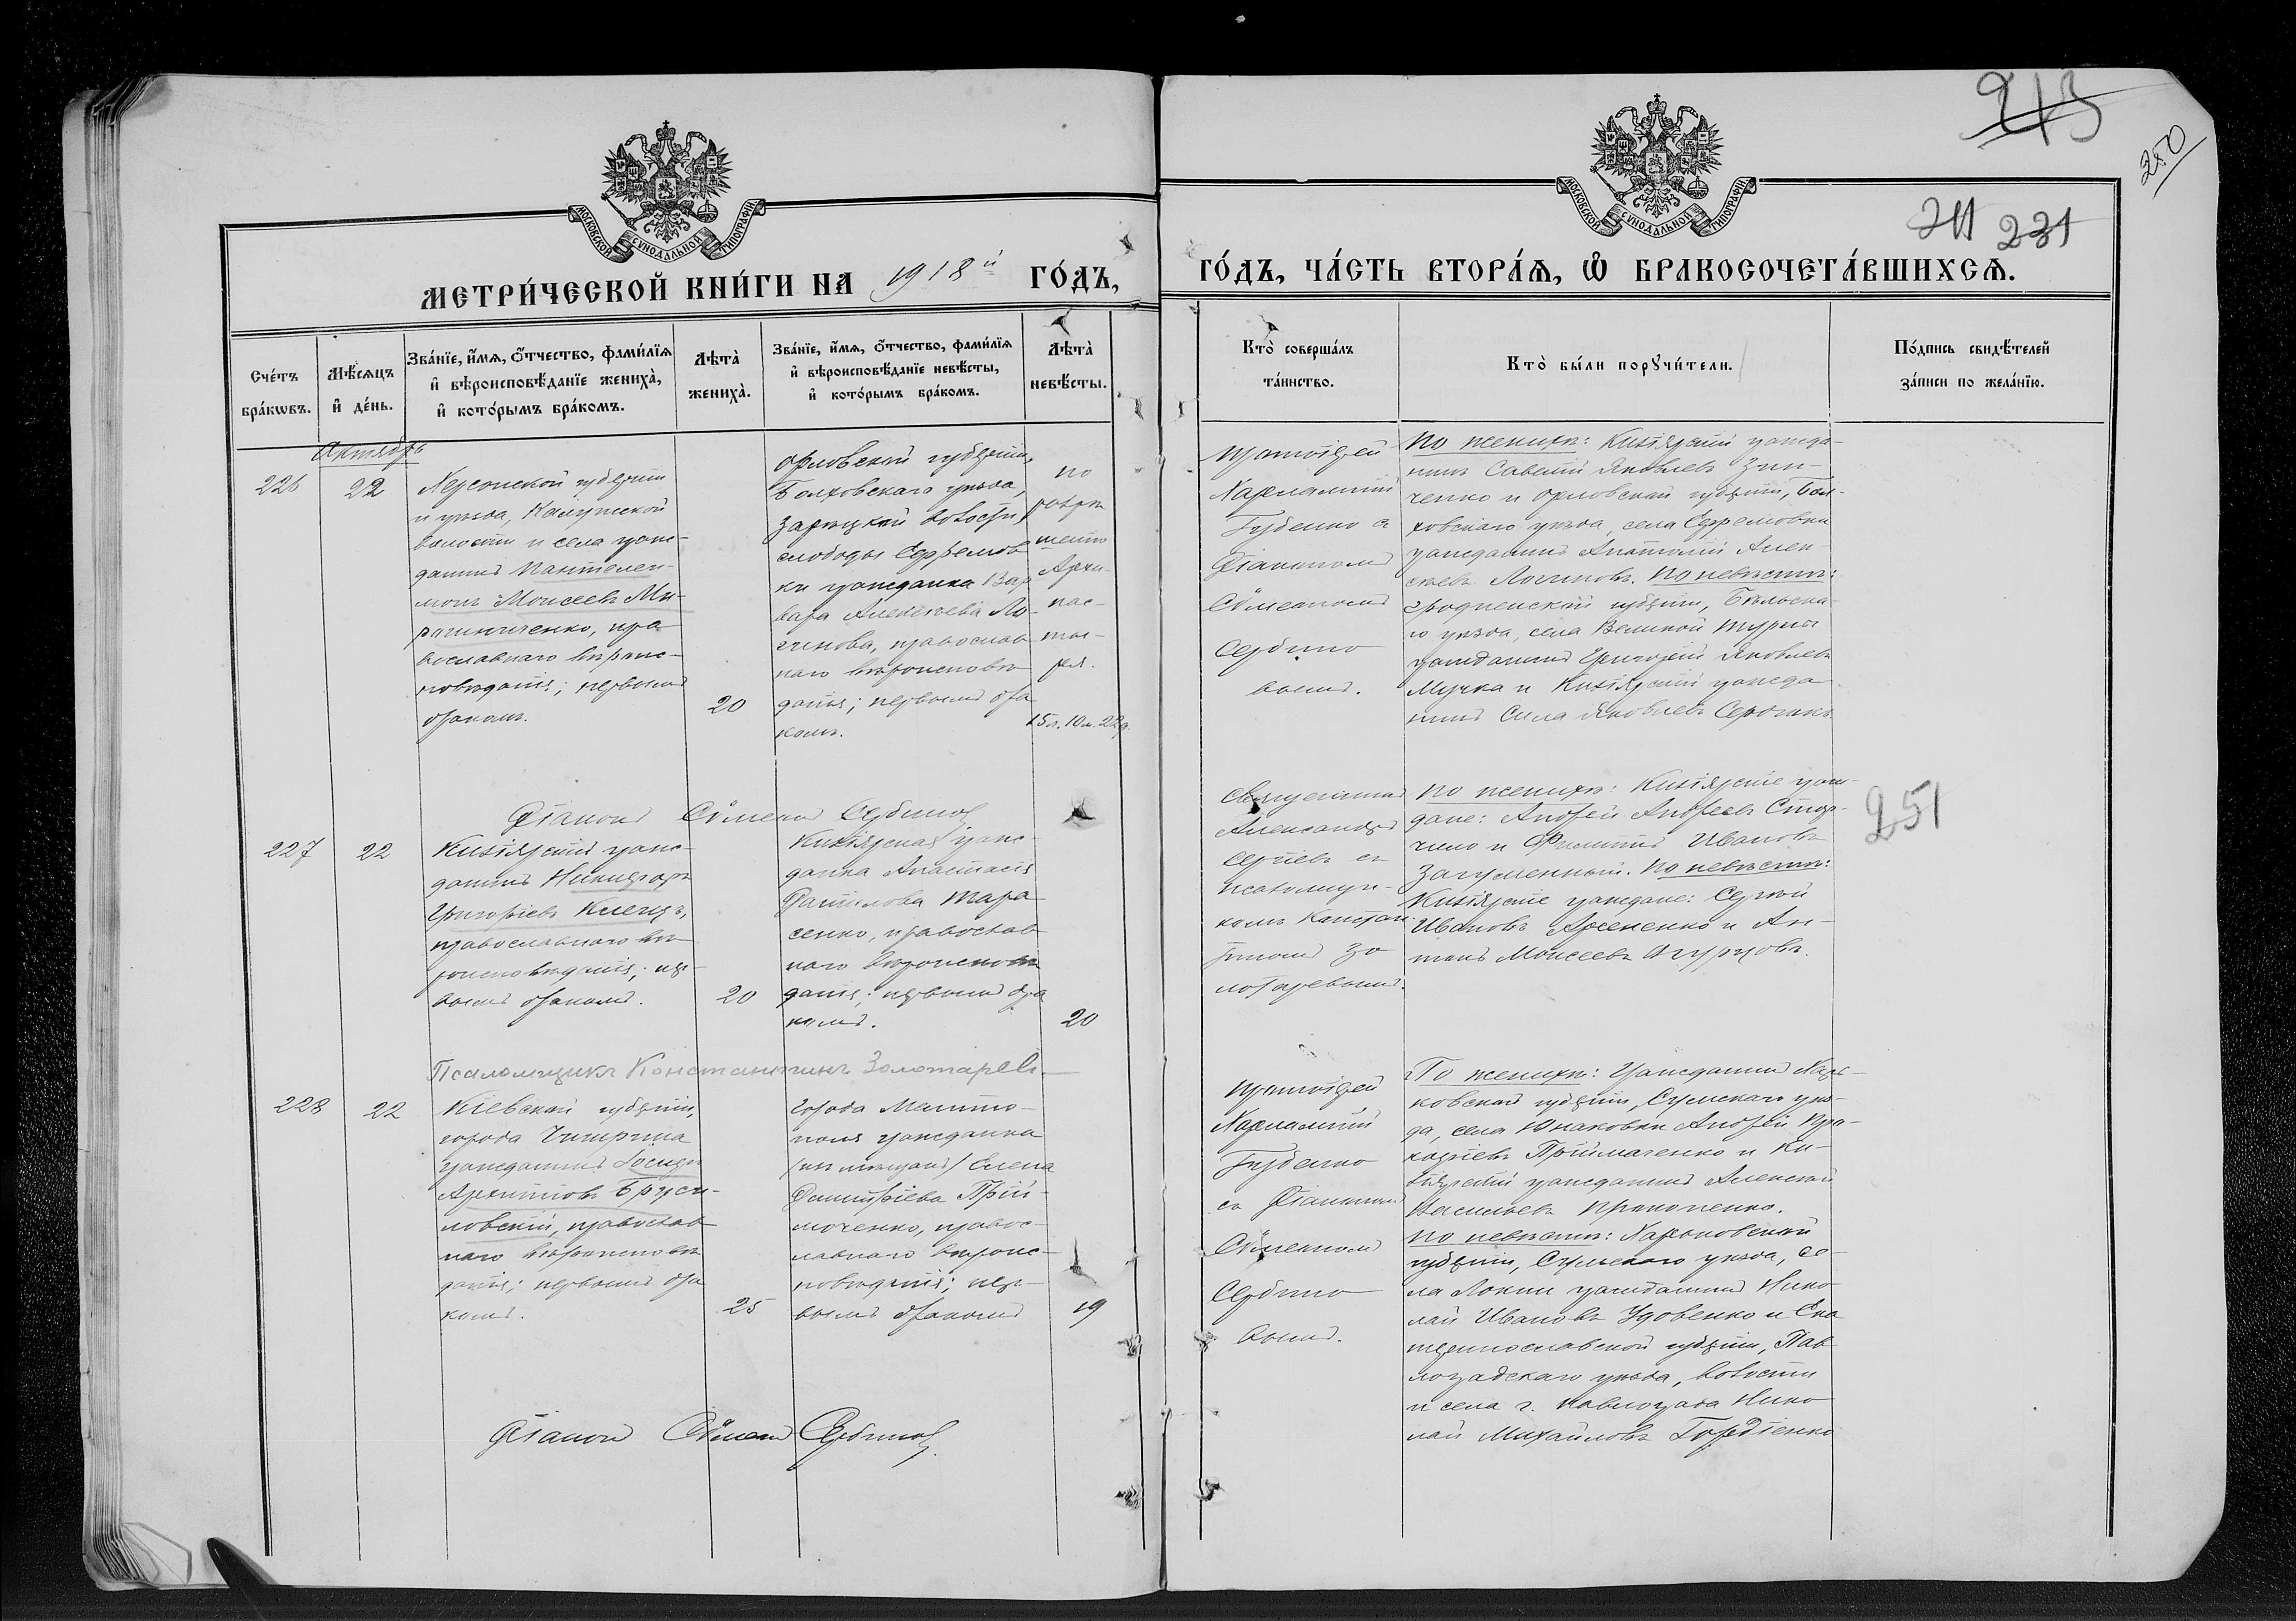 213
250
211 231
МОСКОВСКОЙ СѴНОДАЛЬНОЙ ТИПОГРАФІИ
МОСКОВСКОЙ СѴНОДАЛЬНОЙ ТИПОГРАФІИ
МЕТРИ́ЧЕСКОЙ КНИ́ГИ НА 1918й ГО́ДЪ,
ГО́ДЪ, ЧА́СТЬ ВТОРА́Я, Ѽ БРАКОСОЧЕТА́ВШИХСЯ.
Сче́тъ
бра́кѡвъ.
Мѣ́сяцъ
и҆ де́нь.
Зва́нїе, и҆́мя, ѻ҆́тчество, фами́лїя
и҆ вѣроисповѣ́данїе жениха̀,
и҆ кото́рымъ бра́комъ.
Лѣта̀
жениха̀.
Зва́нїе, и҆́мя, ѻ҆́тчество, фами́лїя
и҆ вѣроисповѣ́данїе невѣ́сты,
и҆ кото́рымъ бра́комъ.
Лѣта̀
невѣ́сты.
Кто̀ соверша́лъ
та́инство.
Кто̀ бы́ли порꙋчи́тели.
По́дпись свидѣ́телей
за́писи по жела́нїю.
Октябрь
226
22
Херсонской губерніи
и уѣзда, Калужской
волости и села граж-
данинъ Пантелеи-
монъ Моисеевъ Ми-
рошниченко, пра
вославнаго вѣроис-
повѣданія; первымъ
бракомъ.
20
Орловской губерніи,
Болховскаго уѣзда,
Зарѣцкой волости,
слободы Ефремов
ки гражданка Вар
вара Алексѣева Ло-
гинова, православ
наго вѣроисповѣ
данія; первымъ бра
комъ.
по
разрѣ
шенію
Архи-
пас-
ты-
ря.
15л. 10м. 22д.
Протоіерей
Харлампій
Губенко с
Діакономъ
Сѵмеономъ
Сербино
вымъ.
По женихѣ: Кизіярскій гражда-
нинъ Савелій Яковлевъ Зин-
ченко и Орловской губерніи, Бол-
ховскаго уѣзда, села Ефремовки
гражданинъ Анатолій Алек-
сѣевъ Логиновъ. По невѣстѣ:
Гродненской губерніи, Бѣльска-
го уѣзда, села Великой Турны
гражданинъ Григорій Яковлевъ
Мучка и Кизіярскій гражда
нинъ Сила Яковлевъ
Діаконъ Сѵмеонъ Сербиновъ
227
22
Кизіярскій граж-
данинъ Никифоръ
Григорьевъ
православнаго вѣ
роисповѣданія; пер-
вымъ бракомъ.
20
Кизіярская граж-
данка Анастасія
Данилова Тара
сенко, православ
наго вѣроисповѣ
данія; первымъ бра
комъ.
20
Священникъ
Александръ
Сергѣевъ съ
псаломщи-
комъ Констан-
тиномъ Зо
лотаревымъ.
По женихѣ: Кизіярскіе граж-
дане: Андрей Андреевъ
и Филиппъ Ивановъ
Загуменный. По невѣстѣ:
Кизіярскіе граждане: Сергѣй
Ивановъ Арженко и Ан-
тонъ Моисеевъ
251
Псаломщикъ Константинъ Золотаревъ
228
22
Кіевской губерніи,
города Чигрина
гражданинъ Іосифъ
Архиповъ Бруси-
ловскій, православ
наго вѣроисповѣ
данія; первымъ бра
комъ.
25
Города Мелито-
поля гражданка
(из мѣщанъ) Елена
Димитріева Прій-
моченко, правос-
лавнаго вѣроис-
повѣданія; пер-
вымъ бракомъ
19
Протоіерей
Харлампій
Губенко
съ Діакономъ
Сѵмеономъ
Сербино
вымъ.
По женихѣ: Гражданинъ Харь-
ковской губерніи, Сумскаго уѣз-
да, села Юнаковки Андрей
Пріймаченко и Ки-
зіярскій гражданинъ Алексѣй
Васильевъ Прокопенко.
По невѣстѣ: Харьковской
губерніи, Сумскаго уѣзда, се-
ла Локни гражданинъ Нико
лай Ивановъ Удовенко и Ека
теринославской губерніи, Пав
лоградскаго уѣзда, волости
и села г. Павлограда Нико
лай Михайловъ Гордіенко
Діаконъ Сѵмеонъ Сербиновъ.